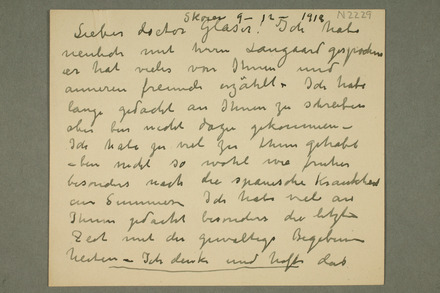 Skøien 9 – 12 – 1918 N2229
Lieber doctor Glaser! Ich habe
neulich mit herrn Langaard gesprochen
er hat vieles von Ihnen und
anneren freunde erzählt – Ich habe
lange gedacht an Ihnen zu schreiben
aber bin nicht dazu gekommen –
Ich habe zu viel zu thun gehabt
– bin nicht so wohl wie früher
besonders nach die spanische Krankheit
am Sommer – Ich habe viel an
Ihnen gedacht besonders die letzte
Zeit mit die gewaltige Begeben-
heiten – Ich denke und hoffe das